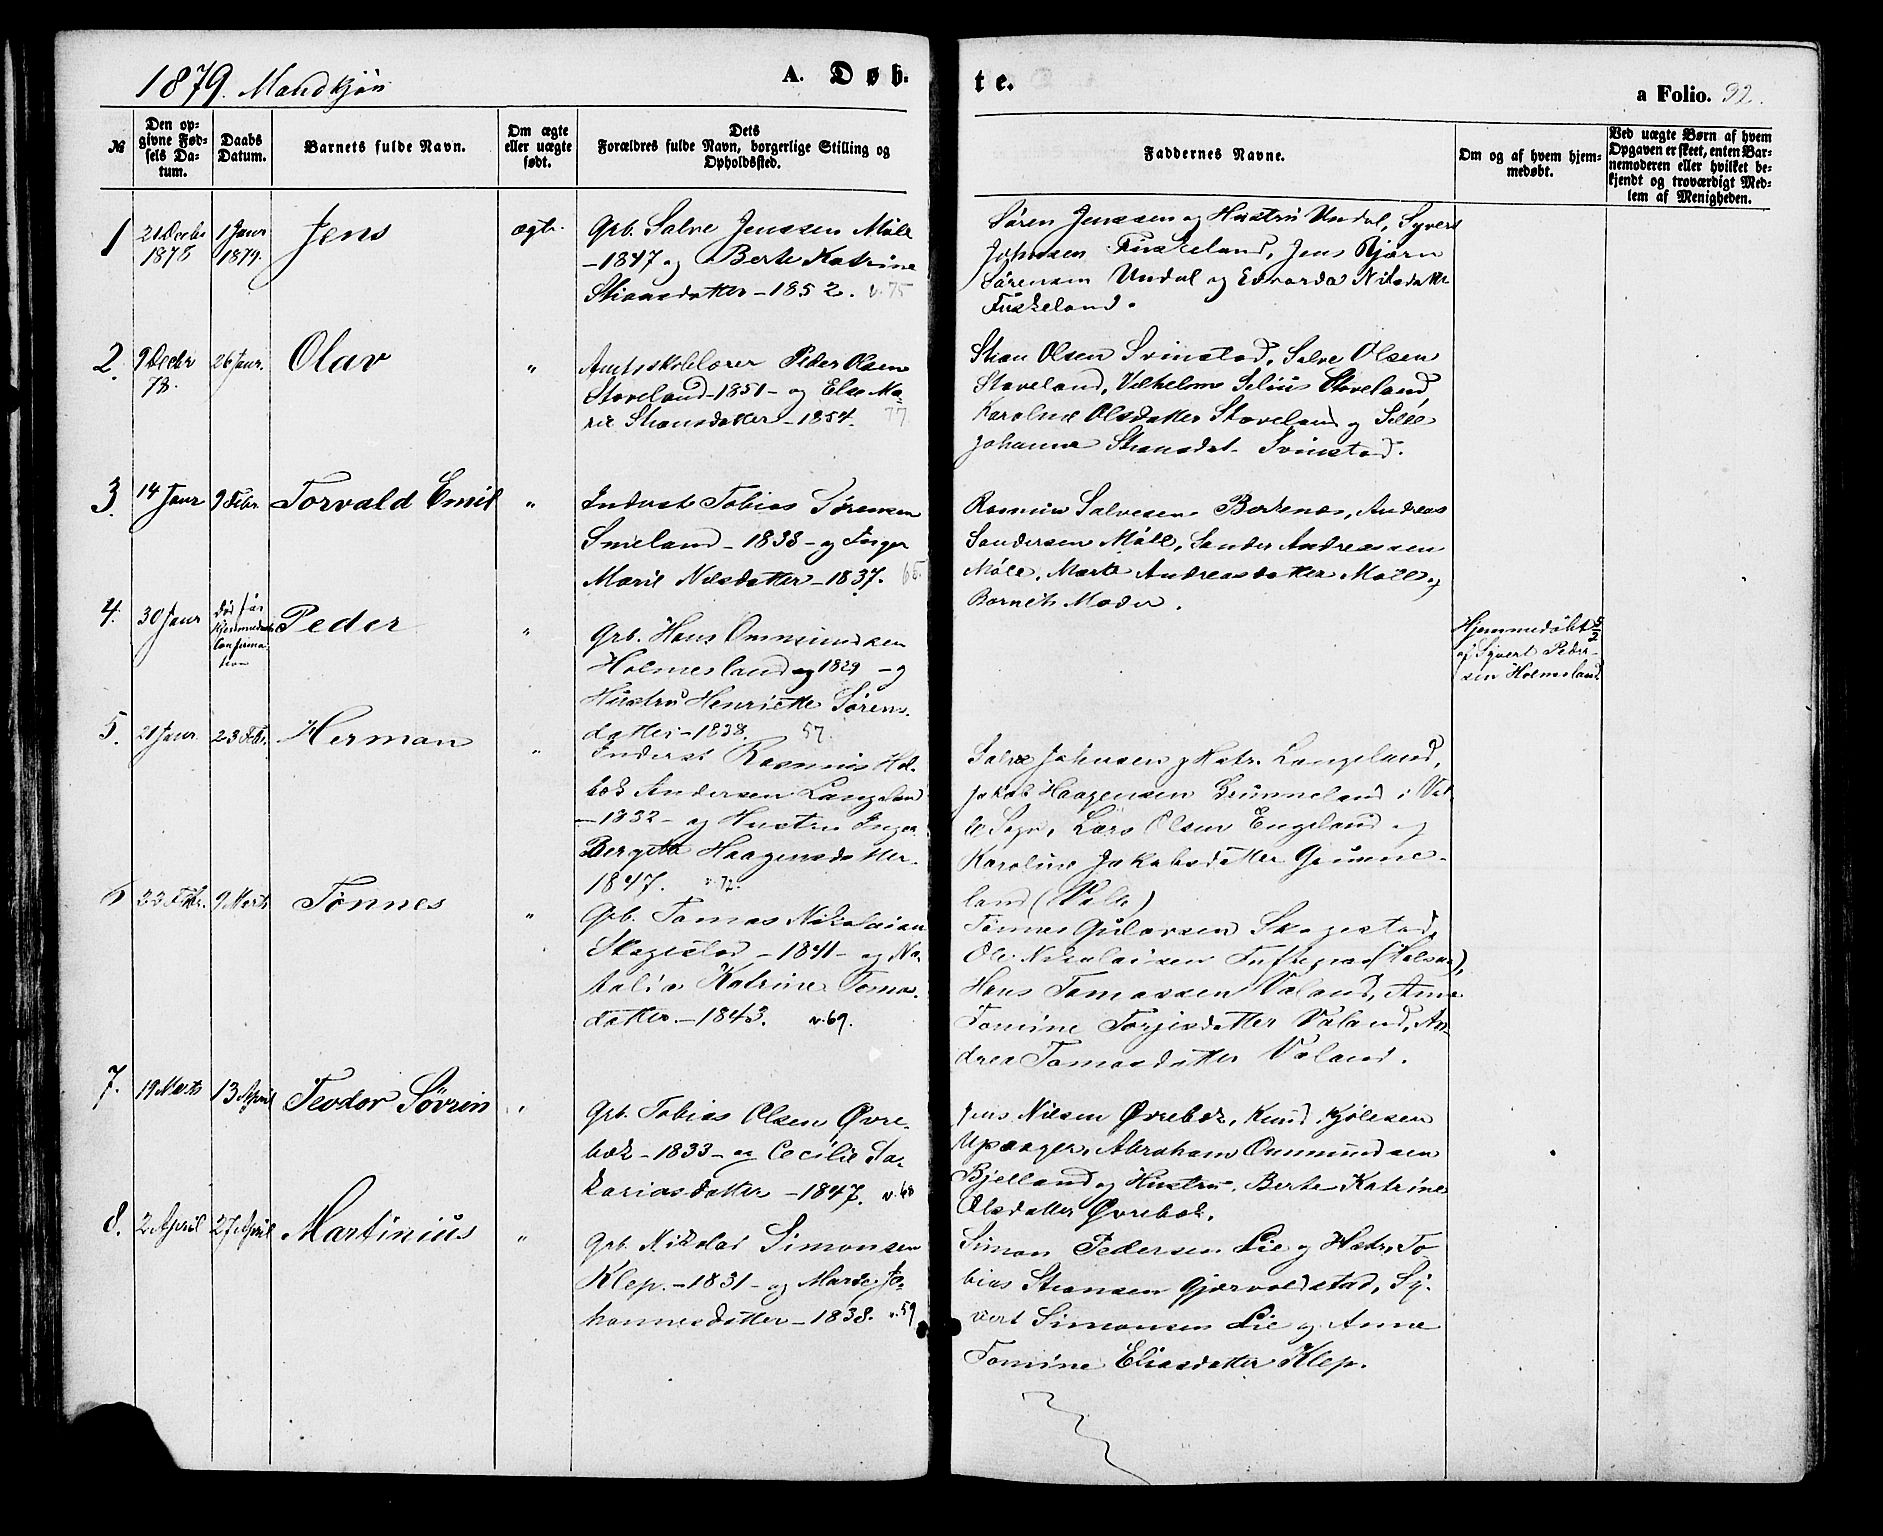 1879. Mandkjøn
A. Døb-
te.
a Folio. 92.
№
Den op-
givne Fød-
sels Da-
tum.
Daabs
Datum.
Barnets fulde Navn.
Om ægte
eller uægte
født.
Dets
Forældres fulde Navn, borgerlige Stilling og
Opholdssted.
Faddernes Navne.
Om og af hvem hjem-
medøbt.
Ved uægte Børn af hvem
Opgaven er skeet, enten Bar-
nemoderen eller hvilket be-
kjendt og troværdigt Med-
lem af Menigheden.
1
21 Decbr
1878
1 Januar
1879.
Jens
ægte
Grb. Salve Jenssen Møll
- 1847 og Berte Katrine
Stiansdatter - 1852. v. 75
Søren Jenssen og Hustru Undal, Syvert
Johnsen Fuskeland, Jens Bjørn
Sørensen Undal og Edvarda Nilsdatter
Fuskeland.
2.
9 Decbr
78.
26 Januar.
Olav
"
Amtsskolelærer Peder Olsen
Støveland - 1851 - og Else Ma-
rie Stiansdatter - 1854. 77
Stian Olsen Svinstad, Salve Olsen
Støveland, Vilhelm Selius Støveland,
Karoline Olsdatter Støveland og Sille
Johanne Stiansdat. Svinstad.
3.
14 Januar
9 Febr.
Torvald Emil
"
Inderst Tobias Sørensen
Smeland - 1833 - og Inger
Marie Nilsdatter - 1837. 65.
Rasmus Salvesen Berkenes, Andreas
Sandersen Møll, Sander Andreassen
Møll, Marte Andreasdatter Møll og
Barnets Moder.
4.
30 Januar
død før
Hjemmedaabs
Confirma-
tion
Peder
"
Grb. Hans Ommundsen
Holmesland og 1829 - og
Hustru Henriette Sørens-
datter - 1838. 57.
Hjemmedøbt 5/2
af Syvert Peder-
sen Holmesland
5.
21 Januar
23 Feb.
Herman
"
Inderst Rasmus Hol-
bek Andersen Langeland
- 1832 - og Hustru Inger
Bergitte Haagensdatter
1847. v. 72.
Salve Johnsen og Hustr. Langeland,
Jakob Haagensen Grunneland i Val-
le Sogn, Lars Olsen Engeland og
Karoline Jakobsdatter Grunne-
land (Valle)
6
23 Febr.
9 Marts
Tønnes
"
Grb. Tomas Nikolaisen
Skagestad - 1841 - og Na-
talia Katrine Tomas-
datter - 1843. v. 69.
Tønnes Gulovsen Skagestad,
Ole Nikolaisen Tuftegrav (Halsaa),
Hans Tomassen Valand, Anne
Tomine Torjusdatter Valand, An-
drea Tomasdatter Valand.
7.
19 Marts
13 April
Teodor Søvrin
"
Grb. Tobias Olsen Øvre-
bøk - 1833 - og Cecilie Sa-
kariasdatter - 1847. v. 68
Jens Nilsen Øvrebøk, Knud Kjølesen
Upsager, Abraham Ommundsen
Bjelland og Hustru, Berte Katrine
Olsdatter Øvrebøk.
8.
2 April
27 April
Martinius
"
Grb. Nikolai Simonsen
Klep. - 1831 - og Marte Jo-
hannesdatter - 1838. v. 59
Simon Pedersen Lie og Hustr, To-
bias Stiansen Gjervoldstad, Sy-
vert Simonsen Lie og Anne
Tomine Eliasdatter Klep.